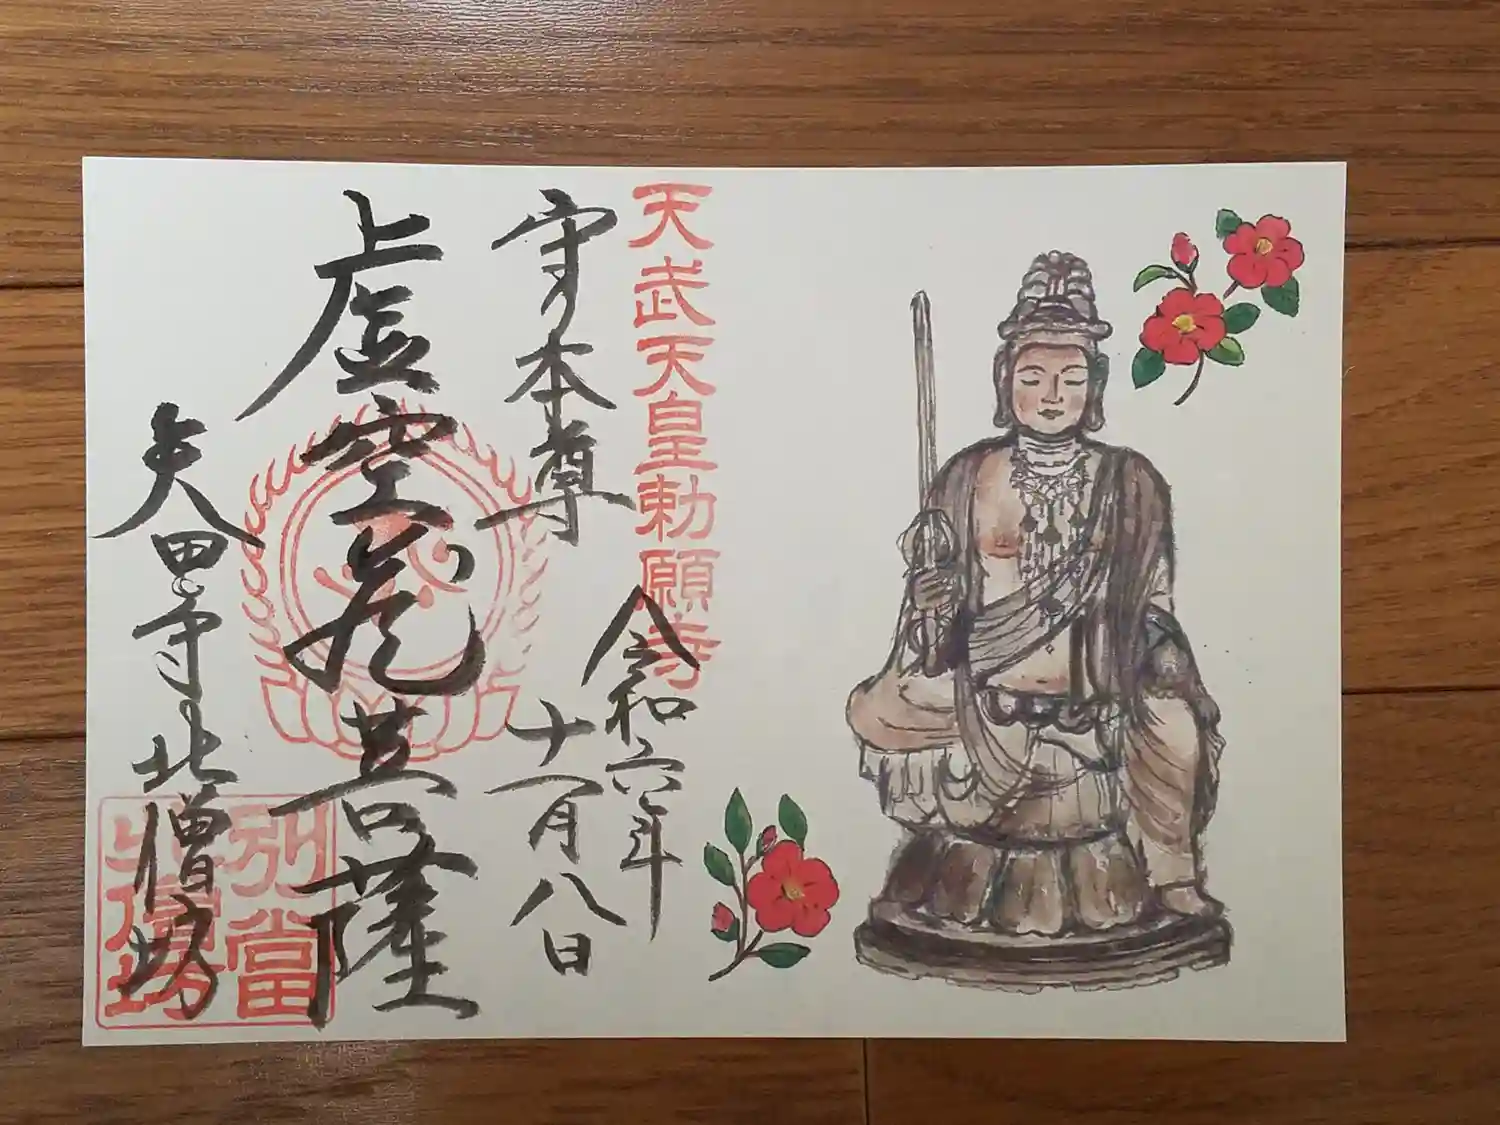 天武天皇勅願寺
守り本尊
令和六年
十一月八日
虚空蔵菩薩
矢田寺北僧坊
別當
北僧坊